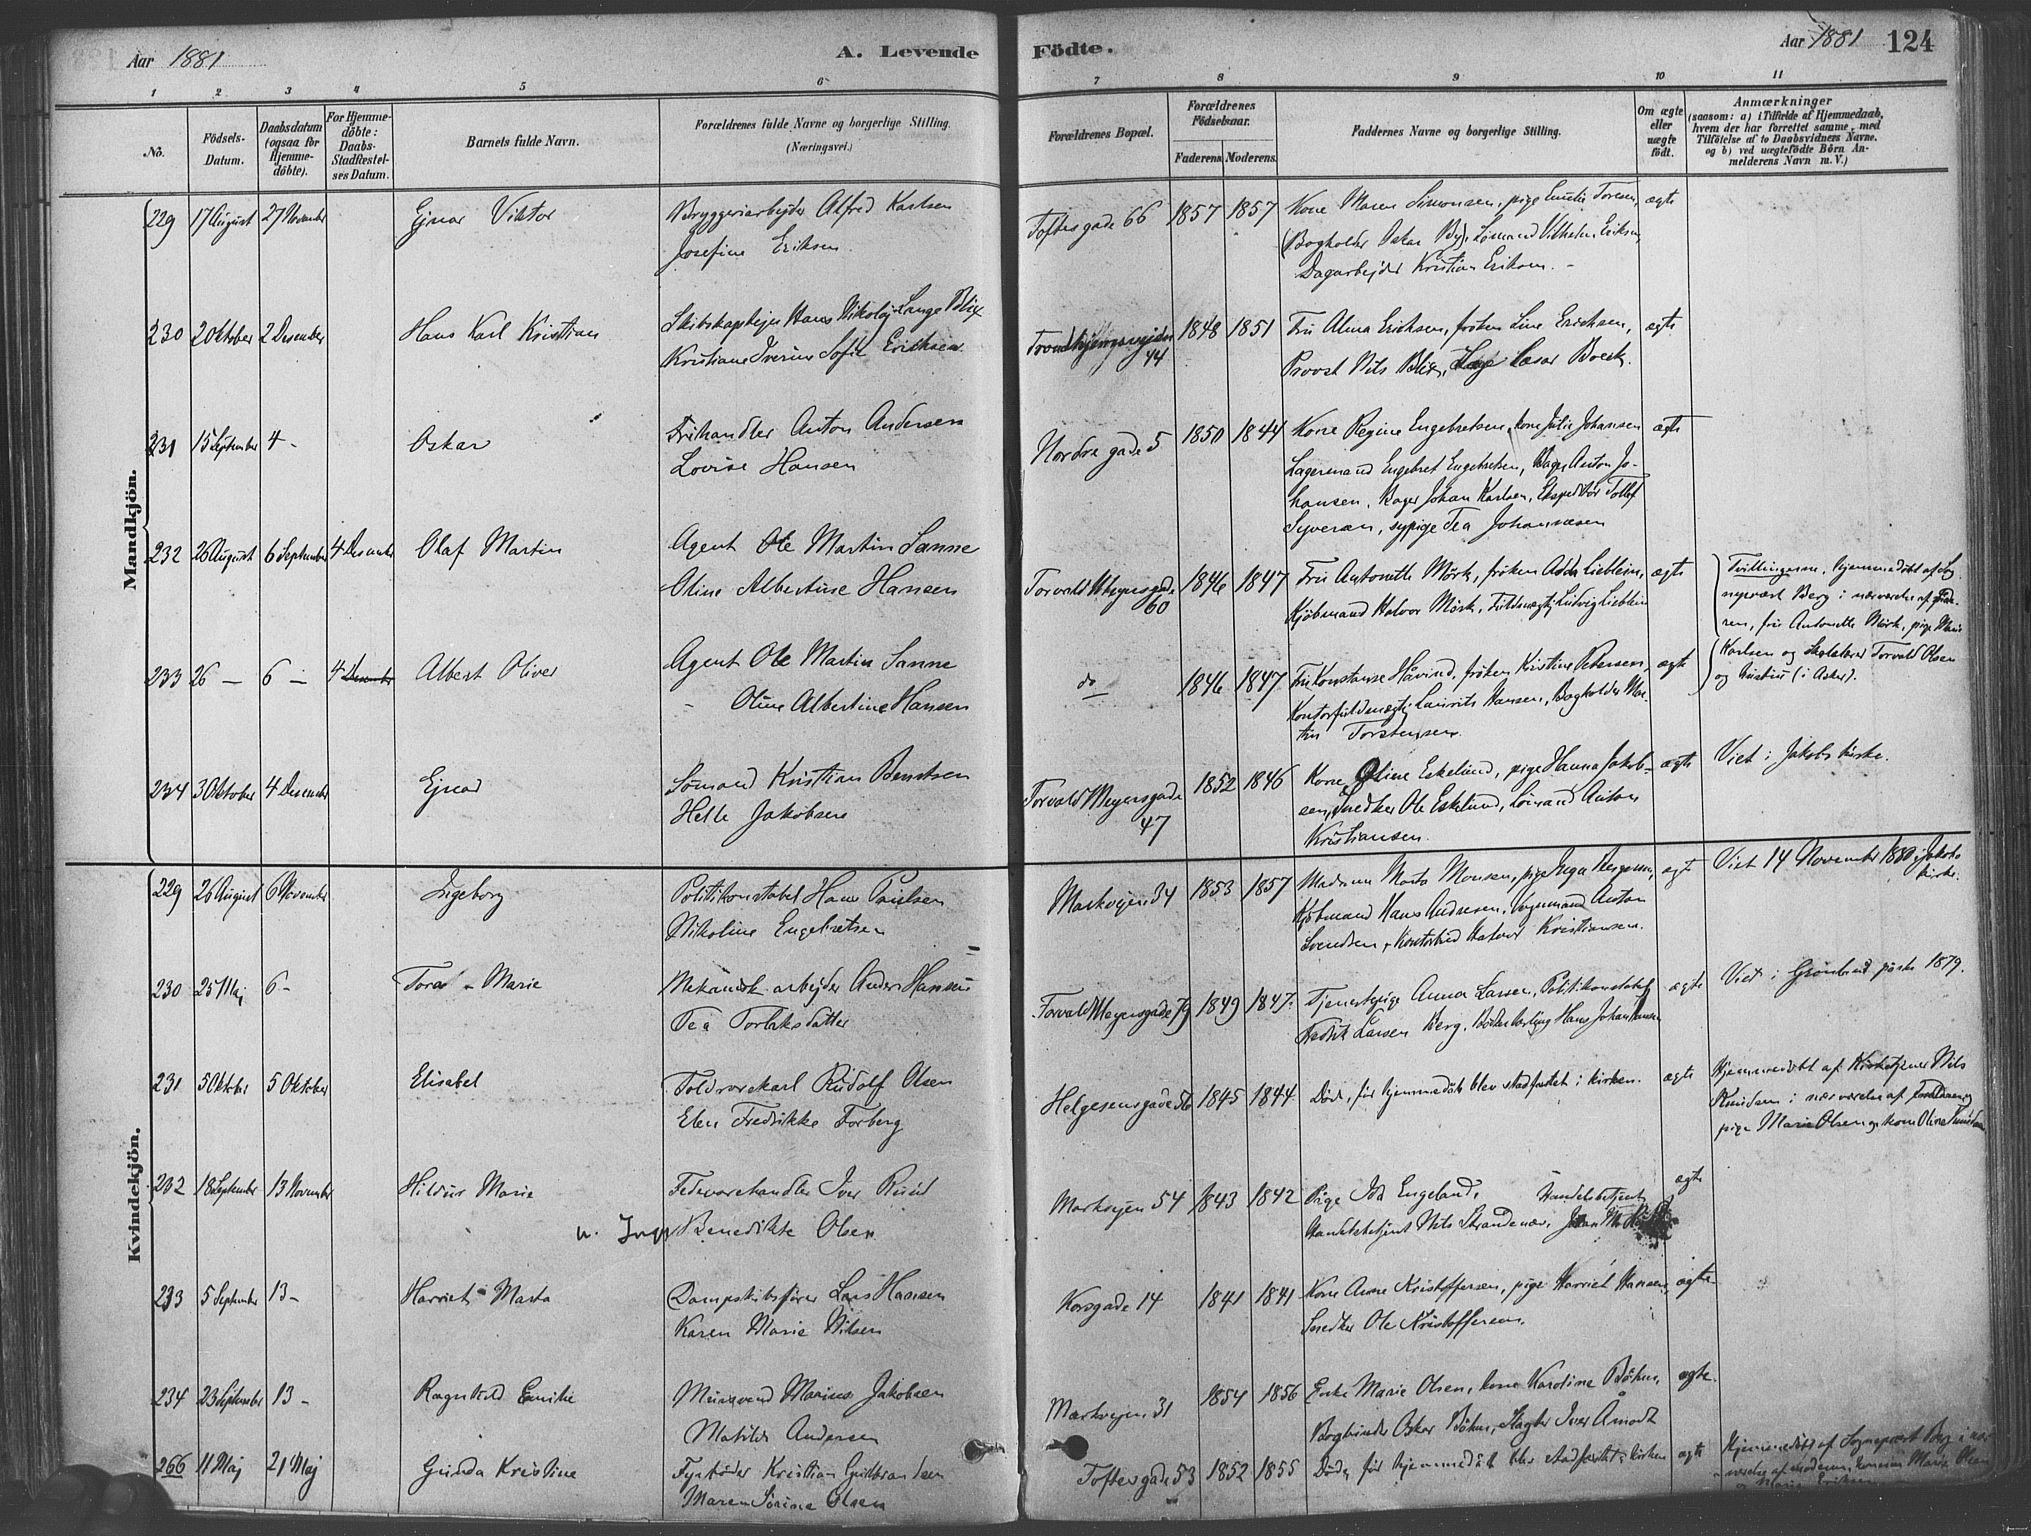 Aar 1881
A. Levende
Födte.
Aar 1881
124
1 2 3 4 5 6 7 8 9 10 11
No.
Födsels-
Datum.
Daabsdatum
(ogsaa for
Hjemme-
döbte).
For Hjemme-
döbte:
Daabs-
Stadfestel-
ses Datum.
Barnets fulde Navn.
Forældrenes fulde Navne og borgerlige Stilling.
(Næringsvei.)
Forældrenes Bopæl.
Forældrenes
Födselsaar.
Faderens. Moderens.
Faddernes Navne og borgerlige Stilling.
Om ægte
eller
uægte
födt.
Anmærkninger
(saasom: a) i Tilfælde af Hjemmedaab,
hvem der har forrettet samme, med
Tilföielse af to Daabsvidners Navne.
og b) ved uægtefödte Börn An-
melderens Navn m. V.)
Mandkjön.
229 17 August 27 November Ejnar Viktor Bryggeriarbejder Alfred Karlsen
Josefine Eriksen
Toftesgade 66 1857 1857 Kone Maren Simonsen, pige Emilie Toresen, ægte
(Bogholder Oskar By), Sømand Vilhelm Eriksen,
Dagarbejder Kristian Eriksen. -
230 2 Oktober 2 Desember Hans Karl Kristian Skibskaptejn Hans Nikolaj Lange Blix
Kristiane Iverine Sofie Erichsen
Trondhjemsvejen 44 1848 1851 Fru Alma Erichsen, frøken Line Erichsen, ægte
Provst Nils Blix, Cæsar Boeck.
231 15 September 4 - Oskar Frihandler Anton Andersen
Lovise Hansen
Nordre gade 5 1850 1844 Kone Regine Engebretsen, kone Julie Johansen ægte
Lagermand Engebret Engebretsen, Bager Anton Jo-
hansen, Bager Johan Karlsen, Ekspeditør Tollef
Syversen, sypige Tea Johannesen
232 26 August 6 September 4 Desember Olaf Martin Agent Ole Martin Sanne
Oline Albertine Hansen
Torvald Meyersgade 60 1846 1847 Fru Antonette Mørk, frøken Adda Lieblein, ægte
Kjøbmand Halvor Mørk, Fuldmægtig Ludvig Lieblein
Tvillingerne, hjemmedøbt af Sog-
nepræst Berg i nærværelse af Fade-
ren, fru Antonette Mørk, pige Marie
Karlsen og Skolelærer Torvald Olsen
og hustru (i Asker).
233 26 - 6 - 4 Desember Albert Oliver Agent Ole Martin Sanne
Oline Albertine Hansen
do 1846 1847 Fru Konstanse Håvind, frøken Kristine Petersen, ægte
Kontorfuldmægtig Laurits Hansen, Bogholder Mar-
tin Torstensen.
234 3 Oktober 4 Desember Ejnar Sømand Kristian Berntsen
Helle Jakobsen
Torvald Meyersgade 47 1852 1846 Kone Oline Eskelund, pige Hanna Jakob- ægte
sen, Snedker Ole Eskelund, Sømand Anton
Kristiansen.
Viet i Jakobs kirke.
Kvindekjön.
229 26 August 6 November Ingeborg Politikonstabel Hans Paulsen
Nikoline Engebretsen
Markvejen 34 1853 1857 Madam Marta Monsen, pige Inga Jørgensen, ægte
Kjøbmand Hans Andresen, Vognmand Anton
Svendsen, Kontorbud Halvor Kristiansen.
Viet 14 November 1880 i Jakobs
kirke.
230 25 Maj 6 - Tora Marie Mekanisk arbejder Anders Hansen
Tea Torlaksdatter
Torvald Meyersgade 79 1849 1847 Tjenestepige Anna Larsen, Politikonstabel ægte
Fredrik Larsen Berg, Bødkerlærling Hans Johan Hansen
Viet i Grønland påske 1879.
231 5 Oktober 5 Oktober Elisabet Toldrorskarl Rudolf Olsen
Elen Fredrikke Forberg
Helgesensgade 56 1845 1844 Død, før hjemmedåb blev stadfæstet i kirken. ægte
Hjemmedøbt af Kirketjener Nils
Knudsen i nærværelse af Forældrene,
pige Marie Olsen og kone Oline Knudsen
232 18 September 13 November Hildur Marie Fedevarehandler Iver Ruud
Benedikte Olsen
Markvejen 54 1843 1842 Pige Ida Engeland, Handelsbetjent ægte
Handelsbetjent Nils Strandenær, Johan
233 5 September 13 - Harriet Marta Dampskibsfører Lars Hansen
Karen Marie Nilsen
Korsgade 14 1841 1841 Kone Anne Kristoffersen, pige Harriet Hansen, ægte
Snedker Ole Kristoffersen.
234 23 September 13 - Ragnhild Emilie Mursvend Marius Jakobsen
Matilde Andersen
Markvejen 31 1854 1856 Enke Marie Olsen, kone Karoline Bøhm, ægte
Bogbinder Oskar Bøhm, Slagter Iver Åmodt
266 11 Maj 21 Maj Gunda Kristine Fyrbøder Kristian Gulbrandsen
Maren Sørine Olsen
Toftesgade 53 1852 1855 Død, før hjemmedåb blev stadfæstet i kirken ægte
Hjemmedøbt af Sognepræst Berg i nær-
værelse af moderen, konerne Marie Olsen
og Marie Eriksen